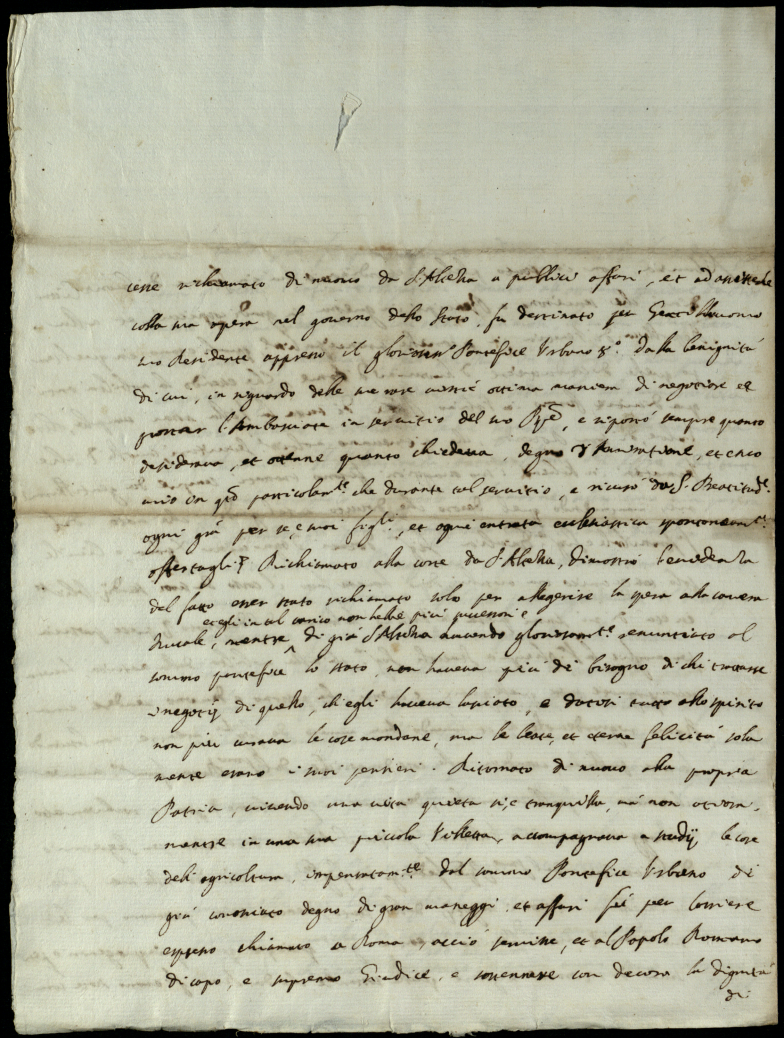 cesse richiamato di nuovo da S. Altezza a publici affari, et ad assisterle
colla sua opera nel governo dello Stato, fu destinato per
suo Residente appresso il Pontefice Urbano 8°. Dalla benignità
di cui, in riguardo delle sue rare ottima maniera di negotiare et
portar l'Ambasciate in servitio del suo Ppe, e riportò sempre quanto
desiderava, et ottenne quanto chiedeva, degno d'Amiratione, et
in qto particolarmte che durante tal servitio, e ricusò da S. Beatitude
ogni grã per se, e suoi figli, et ogni entrata eclesiastica spontaneamte
offertagli. Richiamato alla corte da S. Altezza, dimostrò l'evidenza
del fatto esser stato richiamato solo per allegerire la spesa alla camera
et egli in tal carico non hebbe più successori
Ducale, mentre di già S. Altezza havendo gloriosamte renuntiato al
sommo pontefice lo stato, non haveva più di bisogno di chi trattasse
i negotij di quello, ch'egli haveva lasciato, e datosi tutto allo spirito
non più curava le cose mondane, ma le beate, et eterne felicità sola
mente erano i suoi pensieri. Ritornato di nuovo alla propria
Patria, vivendo una vita quieta sì, e tranquilla, mà non otiosa,
mentre in una sua piccola Villetta, accompagnava a studij le cose
dell'agricoltura, impensatamte dal sommo Pontefice Urbano di
già conosciuto degno di gran maneggi, et affari fù per corriere
espresso chiamato a Roma acciò servisse, et al Popolo Romano
di capo, e supremo Giudice, e sostennesse con decoro la dignità
di